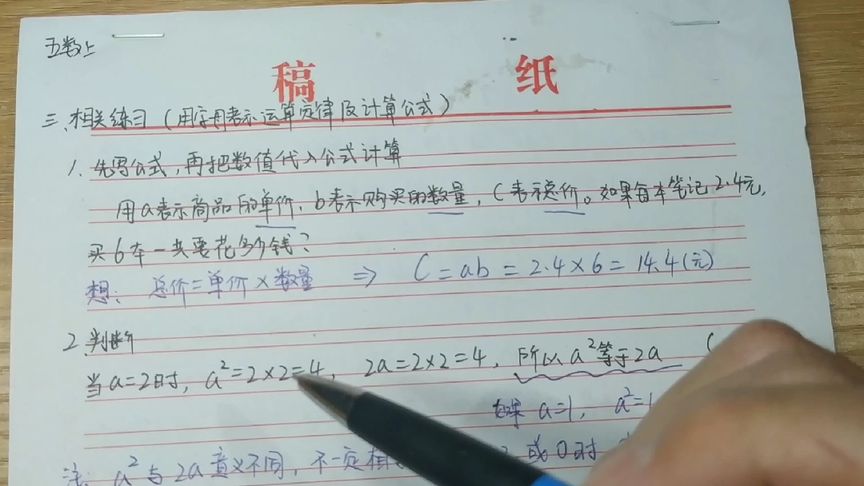 五数上
稿 纸
三、相关练习（用字母表示运算定律及计算公式）
1. 先写公式,再把数值代入公式计算
用a表示商品的单价, b表示购买的数量, C表示总价。如果每本笔记2.4元,
买6本一共要花多少钱?
想: 总价=单价×数量 ⇒ C=ab=2.4×6=14.4(元)
2. 判断
当a=2时, a²=2×2=4, 2a=2×2=4, 所以a²等于2a (
如果 a=1, a²=1
注: a²与2a意义不同, 不一定相 或0时